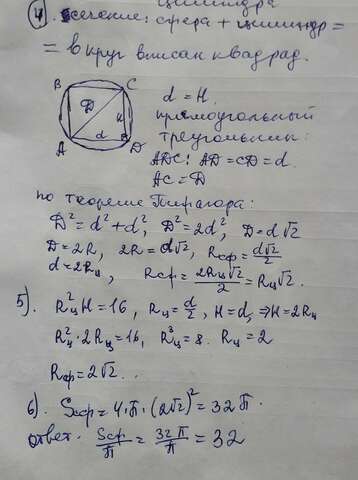 цилиндра
4. сечение: сфера + цилиндр =
= в круг вписан квадрад.
B C
D
d = H.
прямоугольный
H
d
A D
треугольник:
ADC: AD = CD = d.
AC = D
по теореме Пифагора:
D² = d² + d², D² = 2d², D = d√2
D = 2R, 2R = d√2, Rсф = d√2/2
d = 2Rц, Rсф = 2Rц√2/2 = Rц√2.
5). R²ц H = 16, Rц = d/2, H = d, ⇒ H = 2Rц
R²ц · 2Rц = 16, R³ц = 8. Rц = 2
Rсф = 2√2.
6). Sсф = 4·π·(2√2)² = 32π.
ответ. Sсф/π = 32π/π = 32